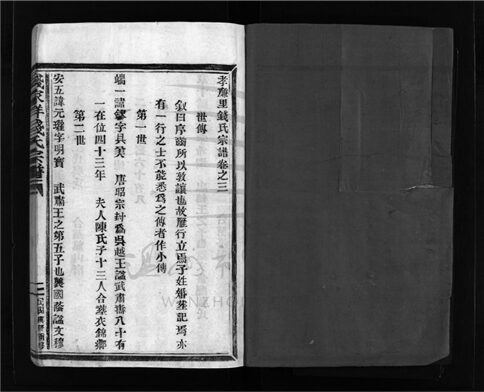 孝廉里錢氏宗譜卷之三
世傳
叙曰序齒所以敦讓也故雁行立焉子姓婚塟記焉亦
有一行之士不能悉爲之傳者作小傳
第一世
端一諱鏐字具美 唐昭宗封爲吳越王諡武肅壽八十有
一在位四十三年 夫人陳氏子十三人合塟衣錦鄉
第二世
安五諱元瓘字明寳 武肅王之第五子也襲國蔭諡文穆
錢氏宗譜